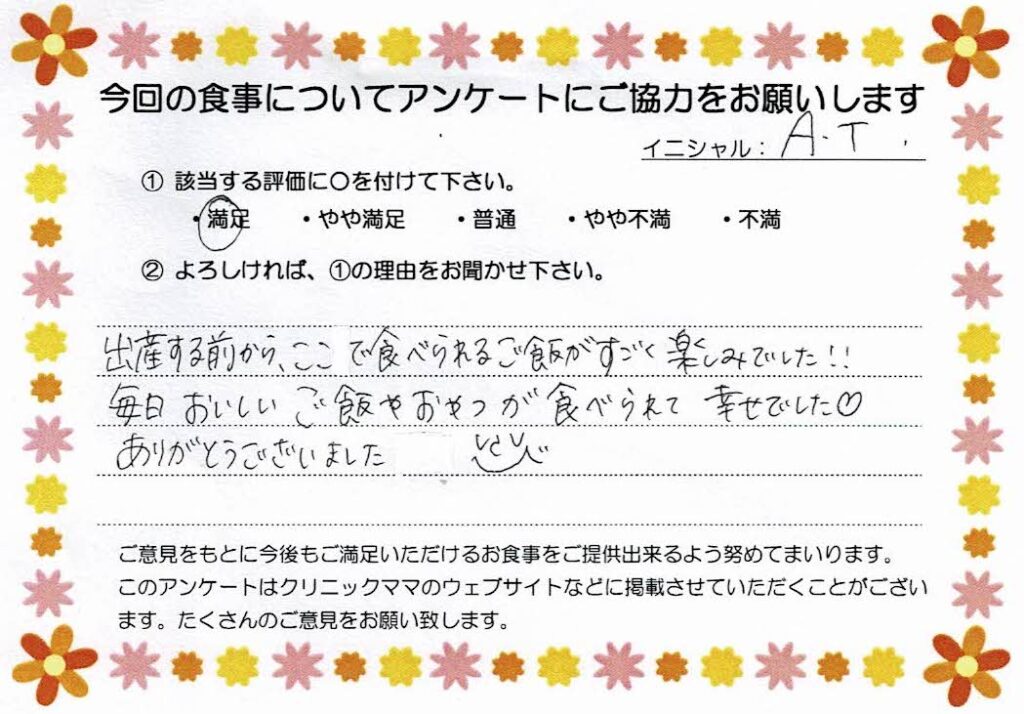 今回の食事についてアンケートにご協力をお願いします
イニシャル： A.T.
① 該当する評価に〇を付けて下さい。
・満足 ・やや満足 ・普通 ・やや不満 ・不満
② よろしければ、①の理由をお聞かせ下さい。
出産する前から、ここで食べられるご飯がすごく楽しみでした!!
毎日おいしいご飯やおやつが食べられて幸せでした♡
ありがとうございました
ご意見をもとに今後もご満足いただけるお食事をご提供出来るよう努めてまいります。
このアンケートはクリニックママのウェブサイトなどに掲載させていただくことがござい
ます。たくさんのご意見をお願い致します。